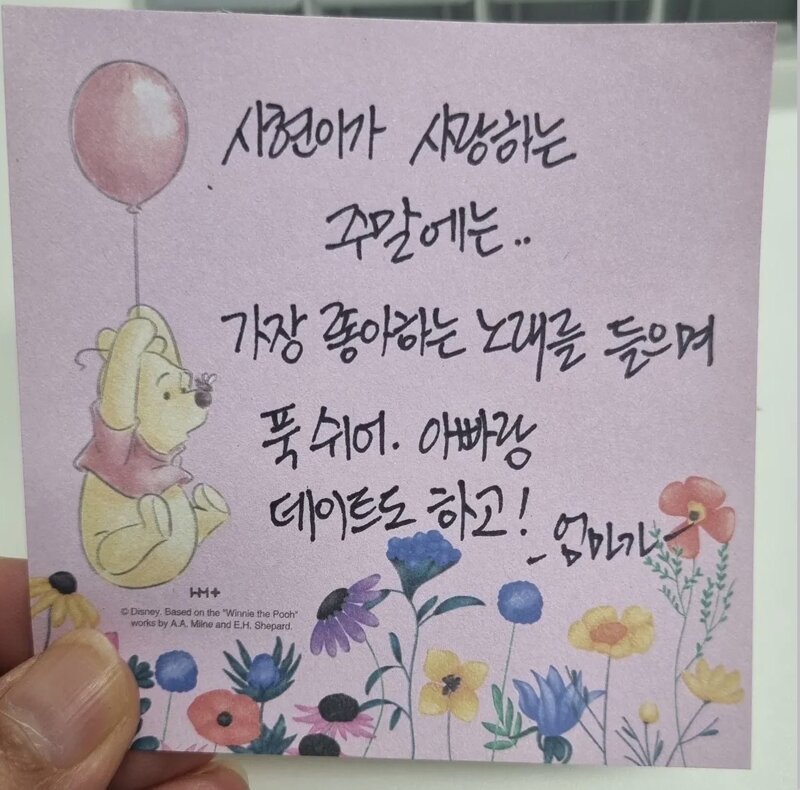 시현이가 사랑하는
주말에는..
가장 좋아하는 노래를 들으며
푹 쉬어. 아빠랑
데이트도 하고!
-엄마가-
HM+
© Disney. Based on the "Winnie the Pooh"
works by A.A. Milne and E.H. Shepard.